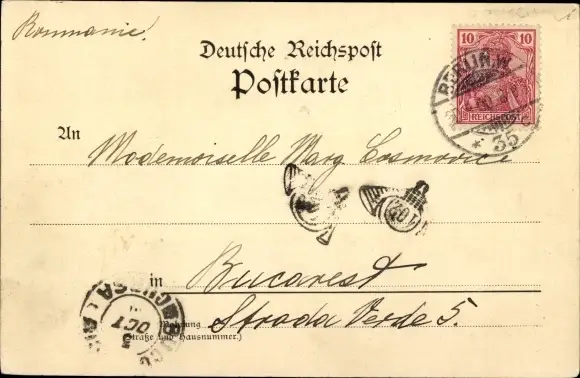 Roumanie.
Deutsche Reichspost
Postkarte
10 10
REICHSPOST
BERLIN, W.
* 35
An Mademoiselle Marg Cosmovici
201
in Bucarest
Wohnung Strada Verde 5.
(Straße und Hausnummer.)
5
OCT